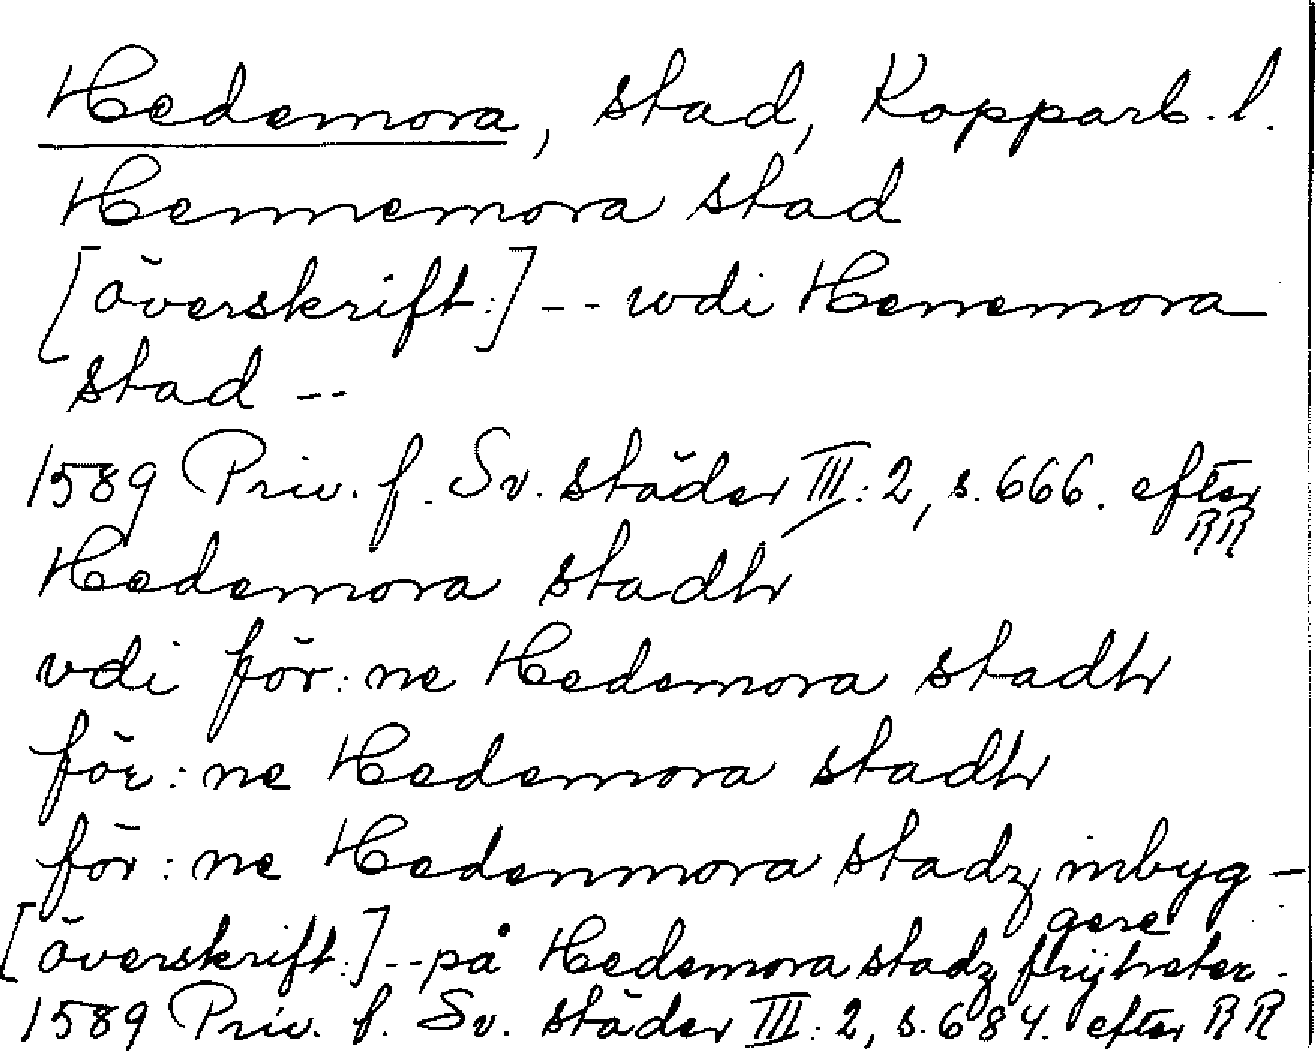 Hedemora, stad, Kopparb. l.
Hennemora stad
[överskrift:] -- wdi Hennemora
stad --
1589 Priv. f. Sv. städer III: 2, s. 666. efter RR
Hedemora stadh
vdi för:ne Hedemora stadh
för:ne Hedemora stadh
för:ne Hedenmora stadz inbyg-
gere
[överskrift:] -- på Hedemora stadz frijheter.
1589 Priv. f. Sv. städer III: 2, s. 684. efter RR